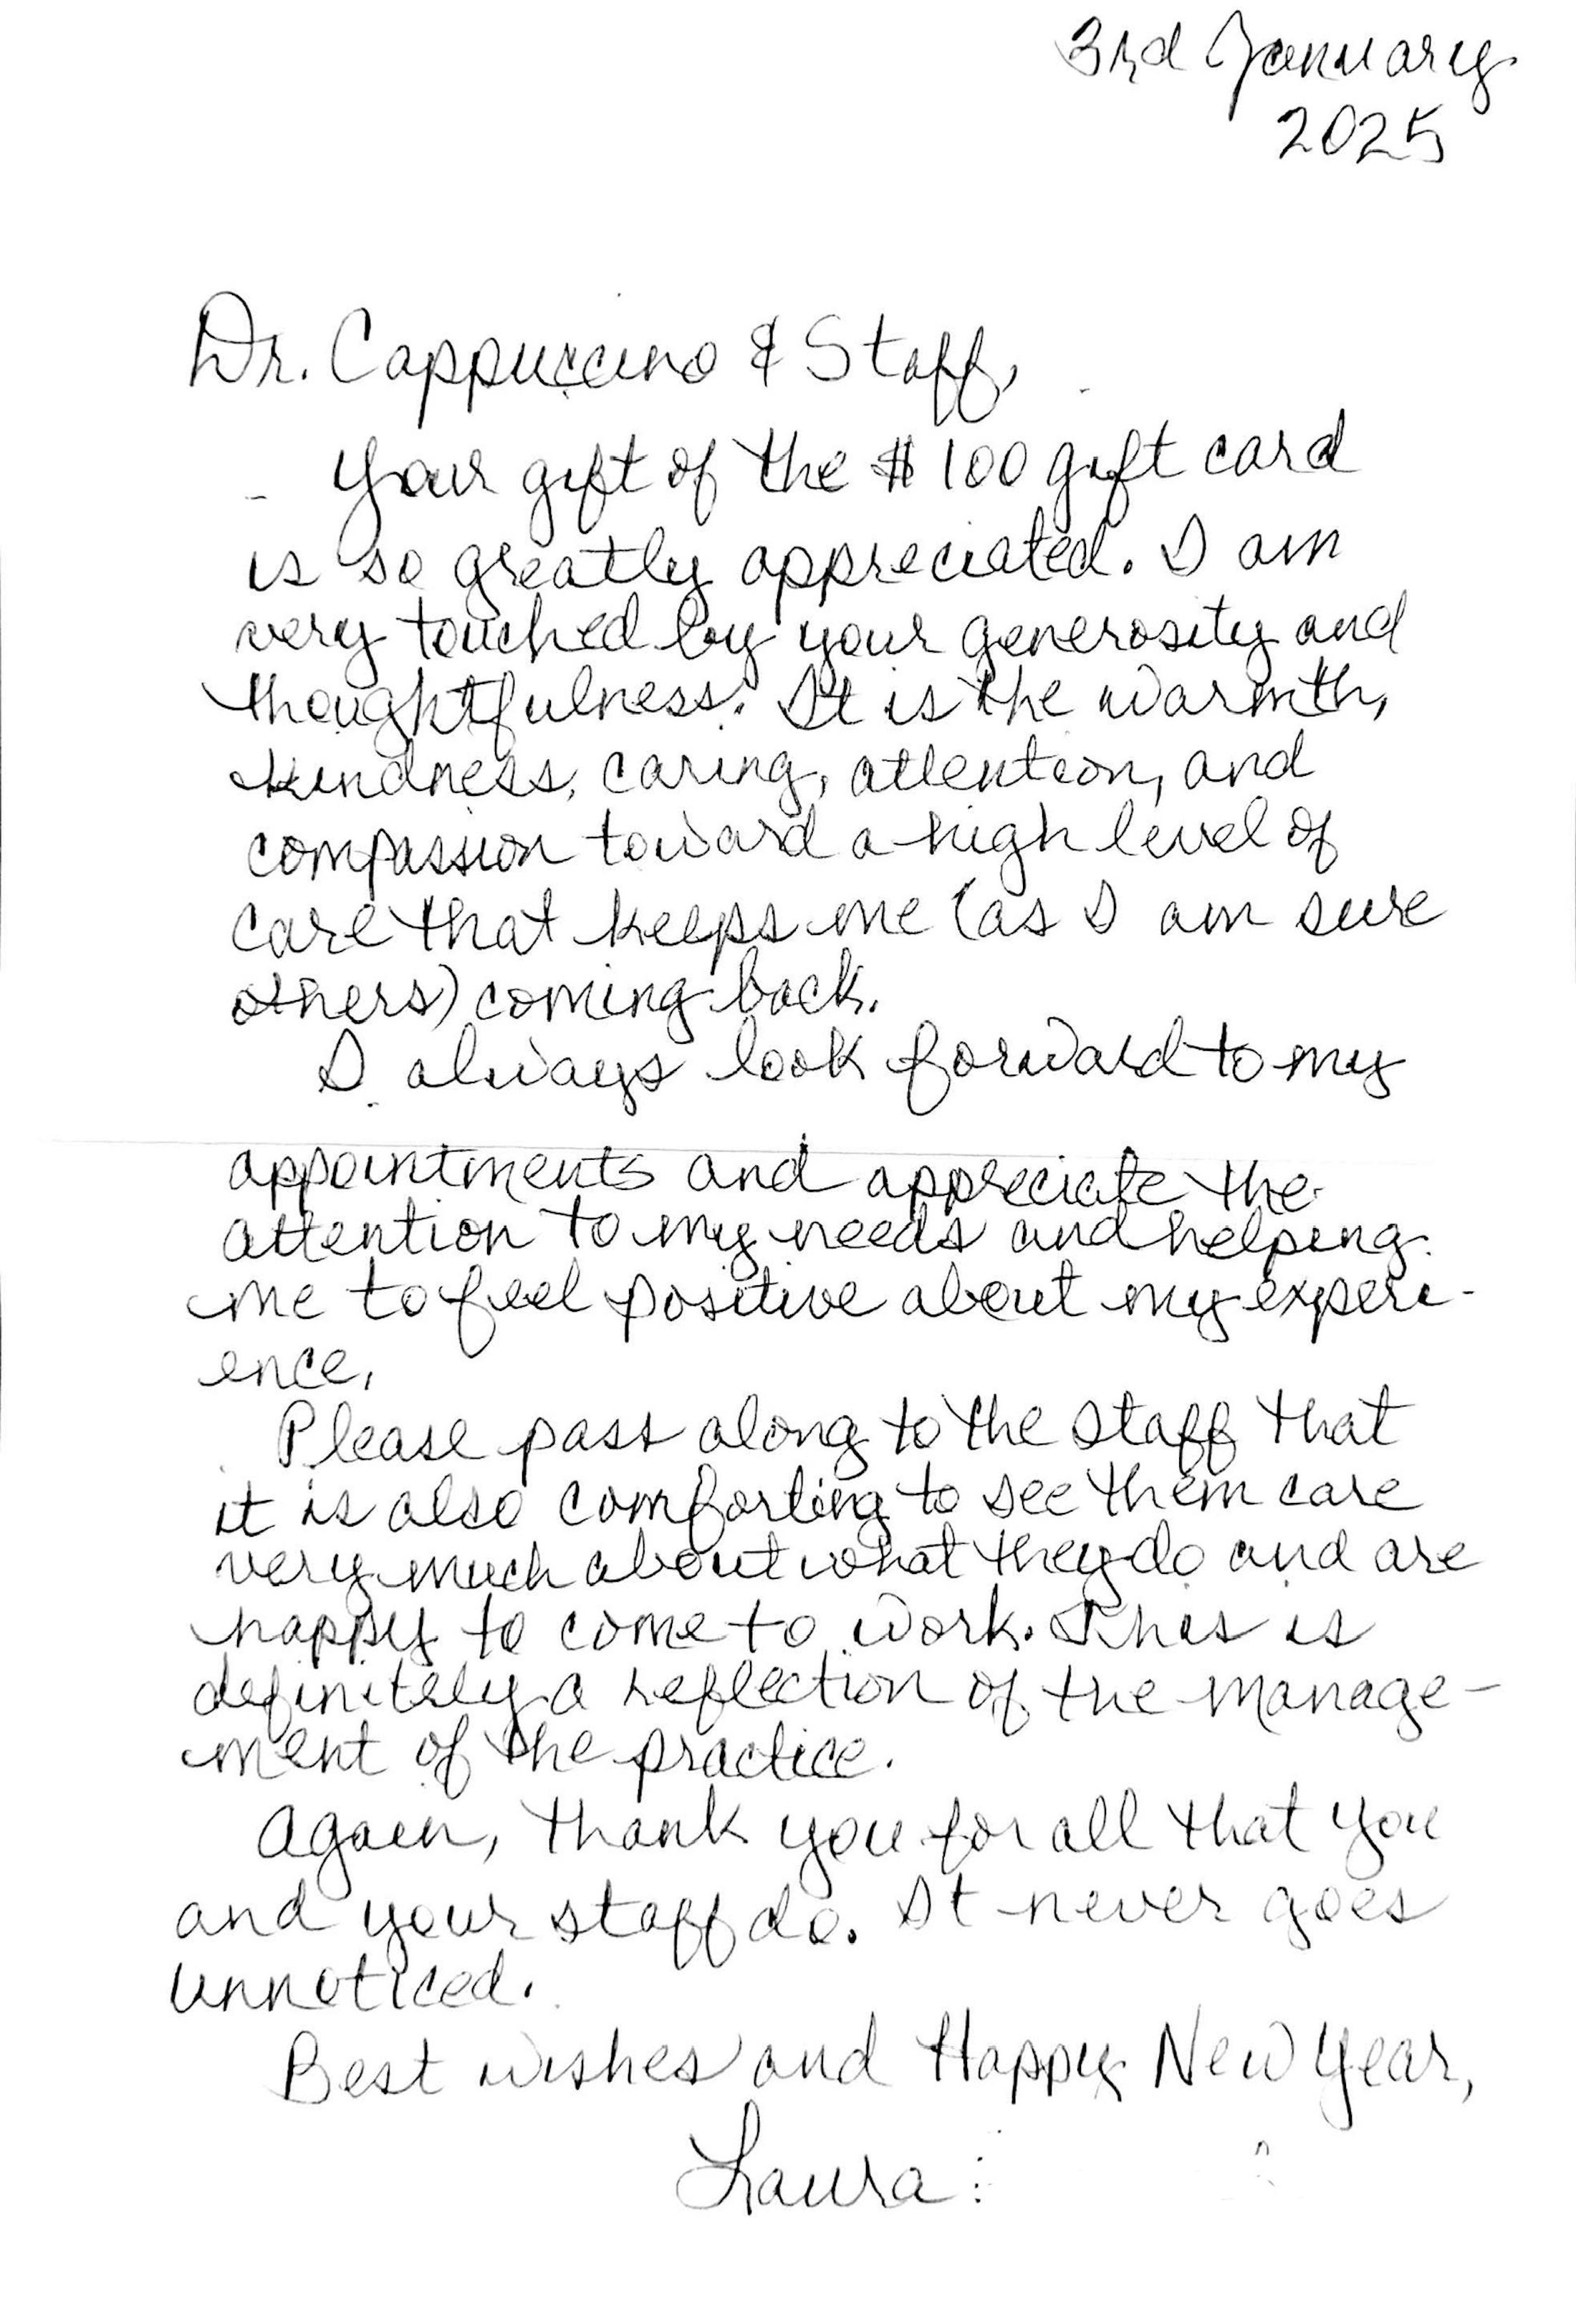 3rd January
2025
Dr. Cappuccino & Staff,
Your gift of the $100 gift card
is so greatly appreciated. I am
very touched by your generosity and
thoughtfulness. It is the warmth,
kindness, caring, attention, and
compassion toward a high level of
care that keeps me (as I am sure
others) coming back.
I always look forward to my
appointments and appreciate the
attention to my needs and helping
me to feel positive about my experi-
ence.
Please pass along to the staff that
it is also comforting to see them care
very much about what they do and are
happy to come to work. This is
definitely a reflection of the manage-
ment of the practice.
Again, thank you for all that you
and your staff do. It never goes
unnoticed.
Best wishes and Happy New Year,
Laura